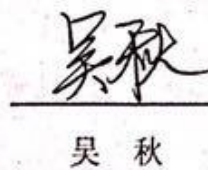 吴秋
吴 秋